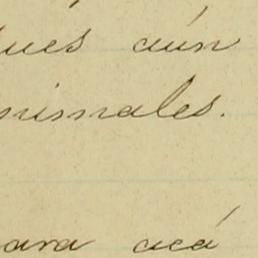 ues aún
nimales.
ara acá